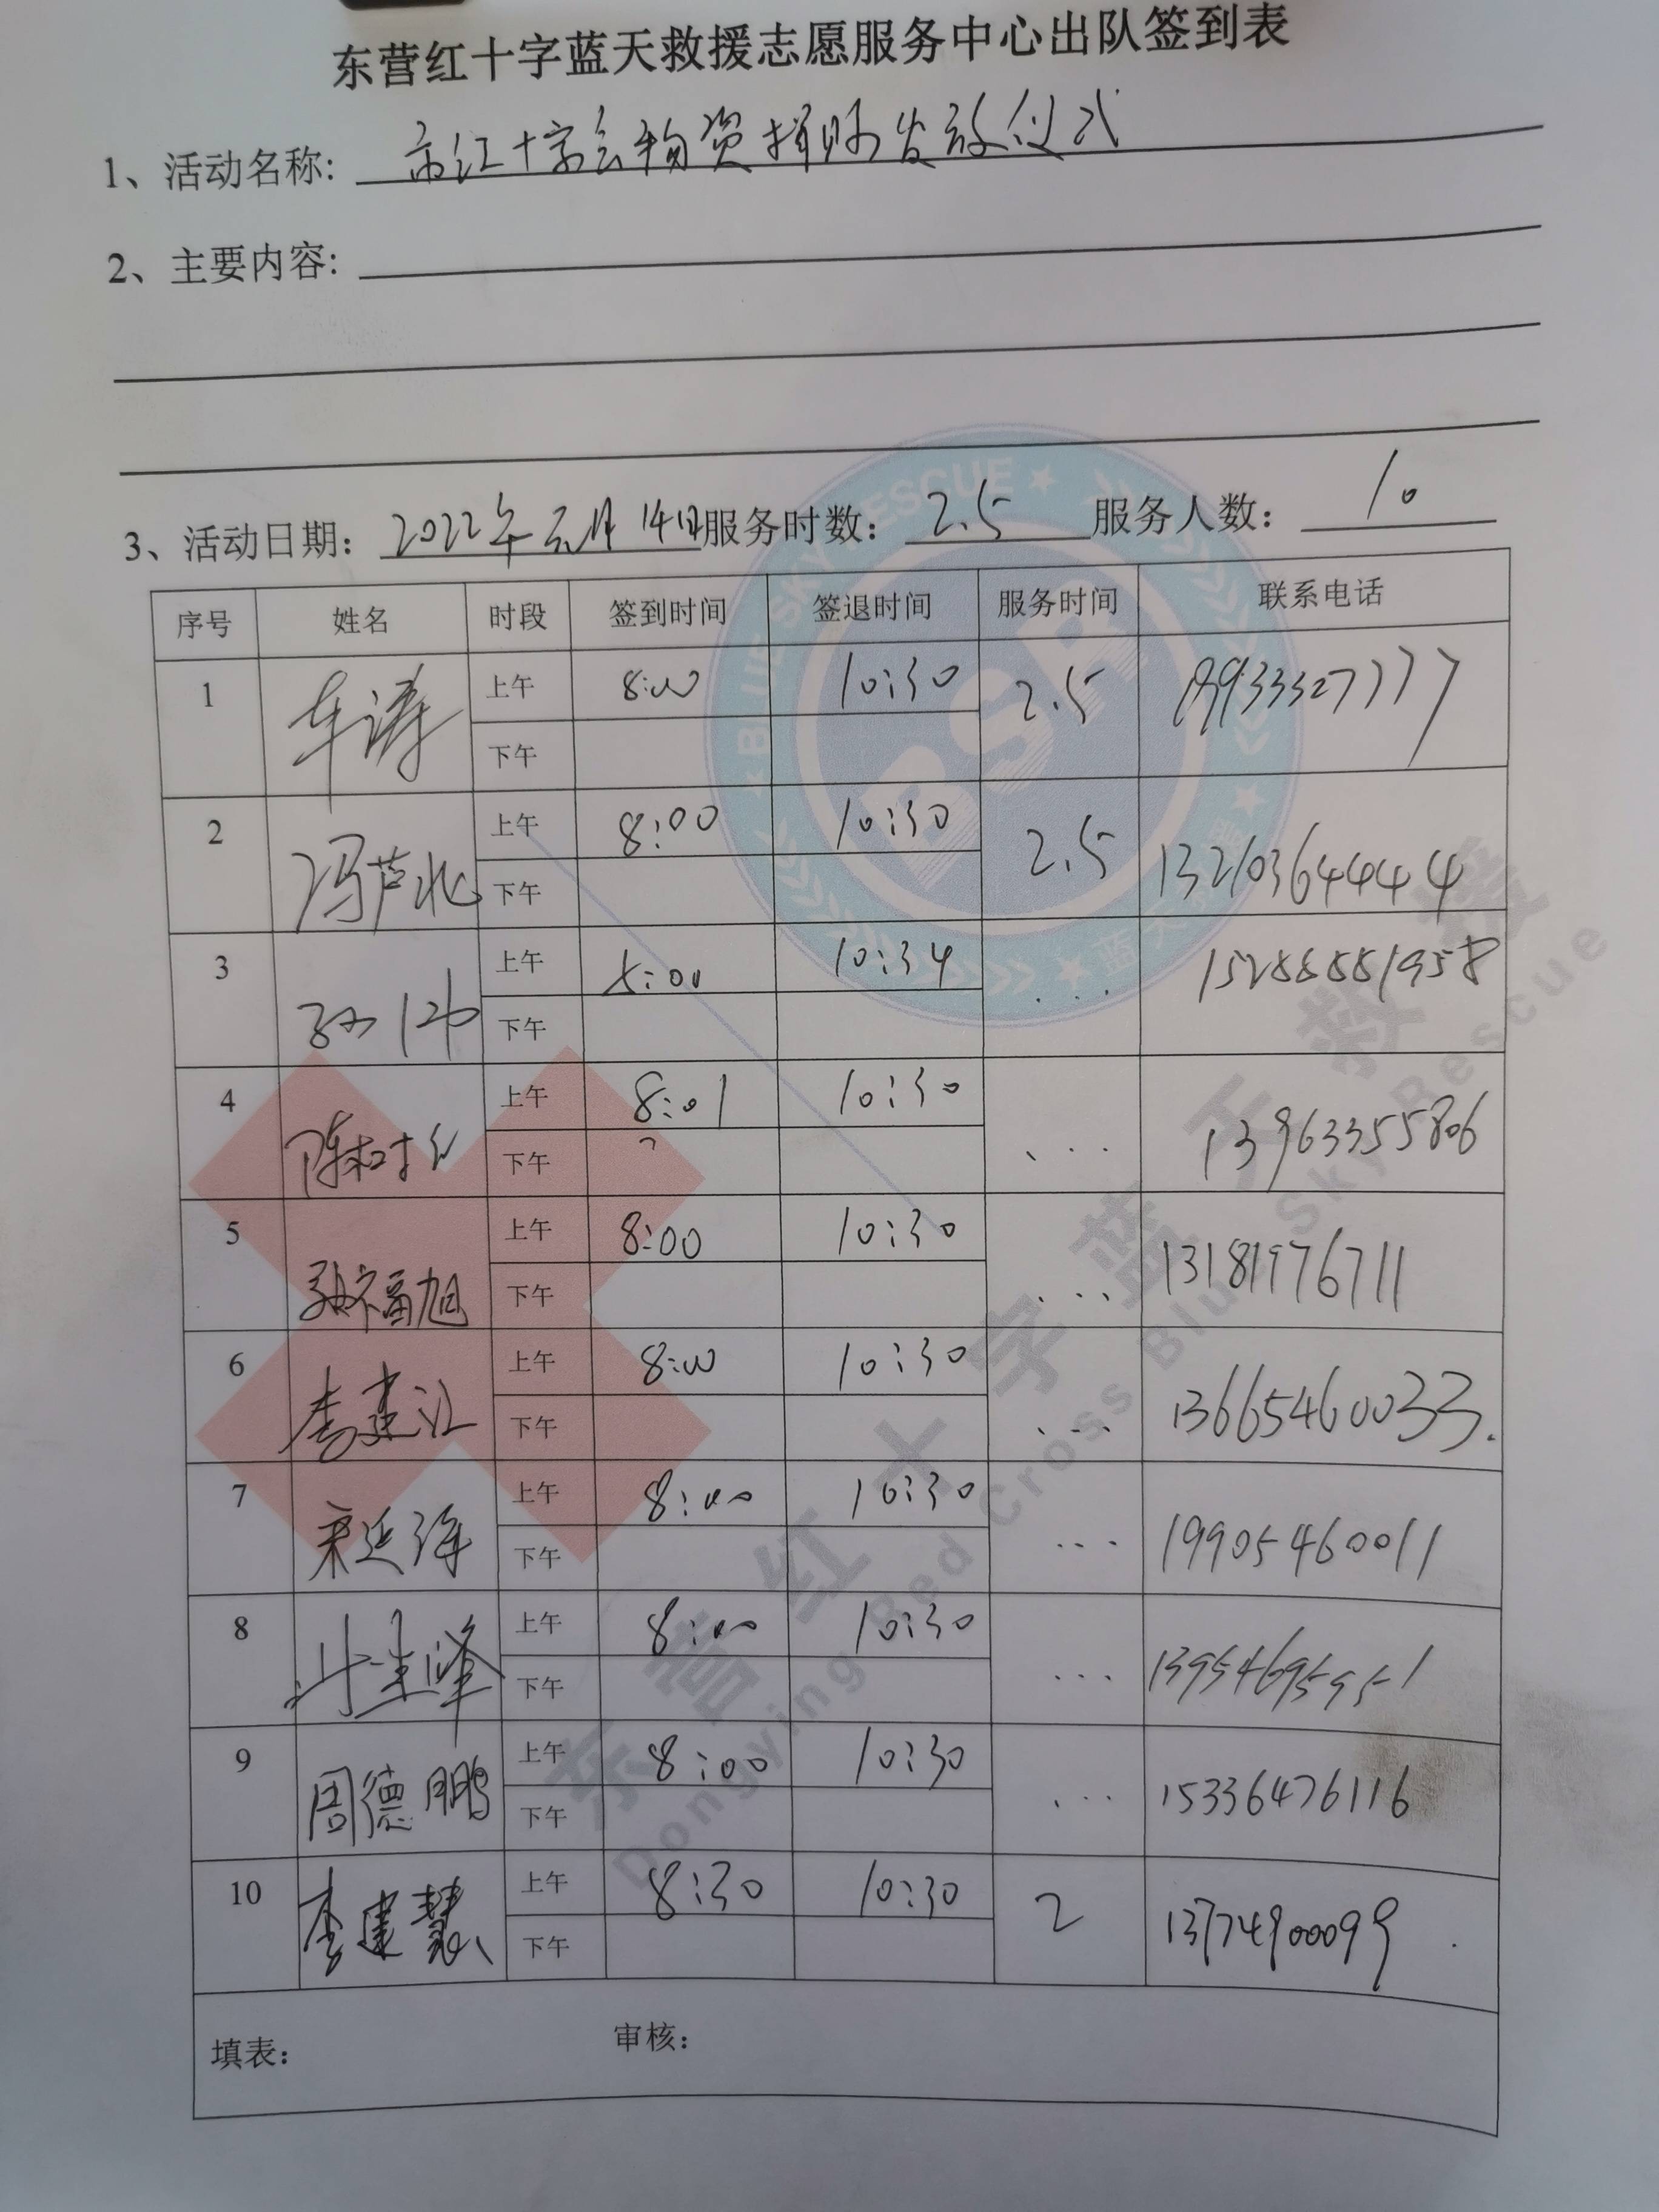 东营红十字蓝天救援志愿服务中心出队签到表
1、活动名称: 市红十字会物资捐赠发放仪式
2、主要内容:
3、活动日期: 2022年元月14日 服务时数: 2.5 服务人数: 10
序号 姓名 时段 签到时间 签退时间 服务时间 联系电话
1 车涛 上午 8:00 10:30 2.5
下午
2 冯芦北 上午 8:00 10:30 2.5 13210364444
下午
3 上午 8:00 10:34 ... 15288881958
下午
4 上午 8:01 10:30 ... 13963355806
下午
5 孙福旭 上午 8:00 10:30 ... 13181976711
下午
6 李建江 上午 8:00 10:30 ... 13665460033.
下午
7 上午 8:00 10:30 ... 19905460011
下午
8 上午 8:00 10:30 ... 13954695951
下午
9 周德鹏 上午 8:00 10:30 ... 15336476116
下午
10 李建慧 上午 8:30 10:30 2 13774900099
下午
填表: 审核:
BLUE SKY RESCUE
BSR
蓝天救援
东营红十字蓝天救援
Dongying Red Cross Blue Sky Rescue